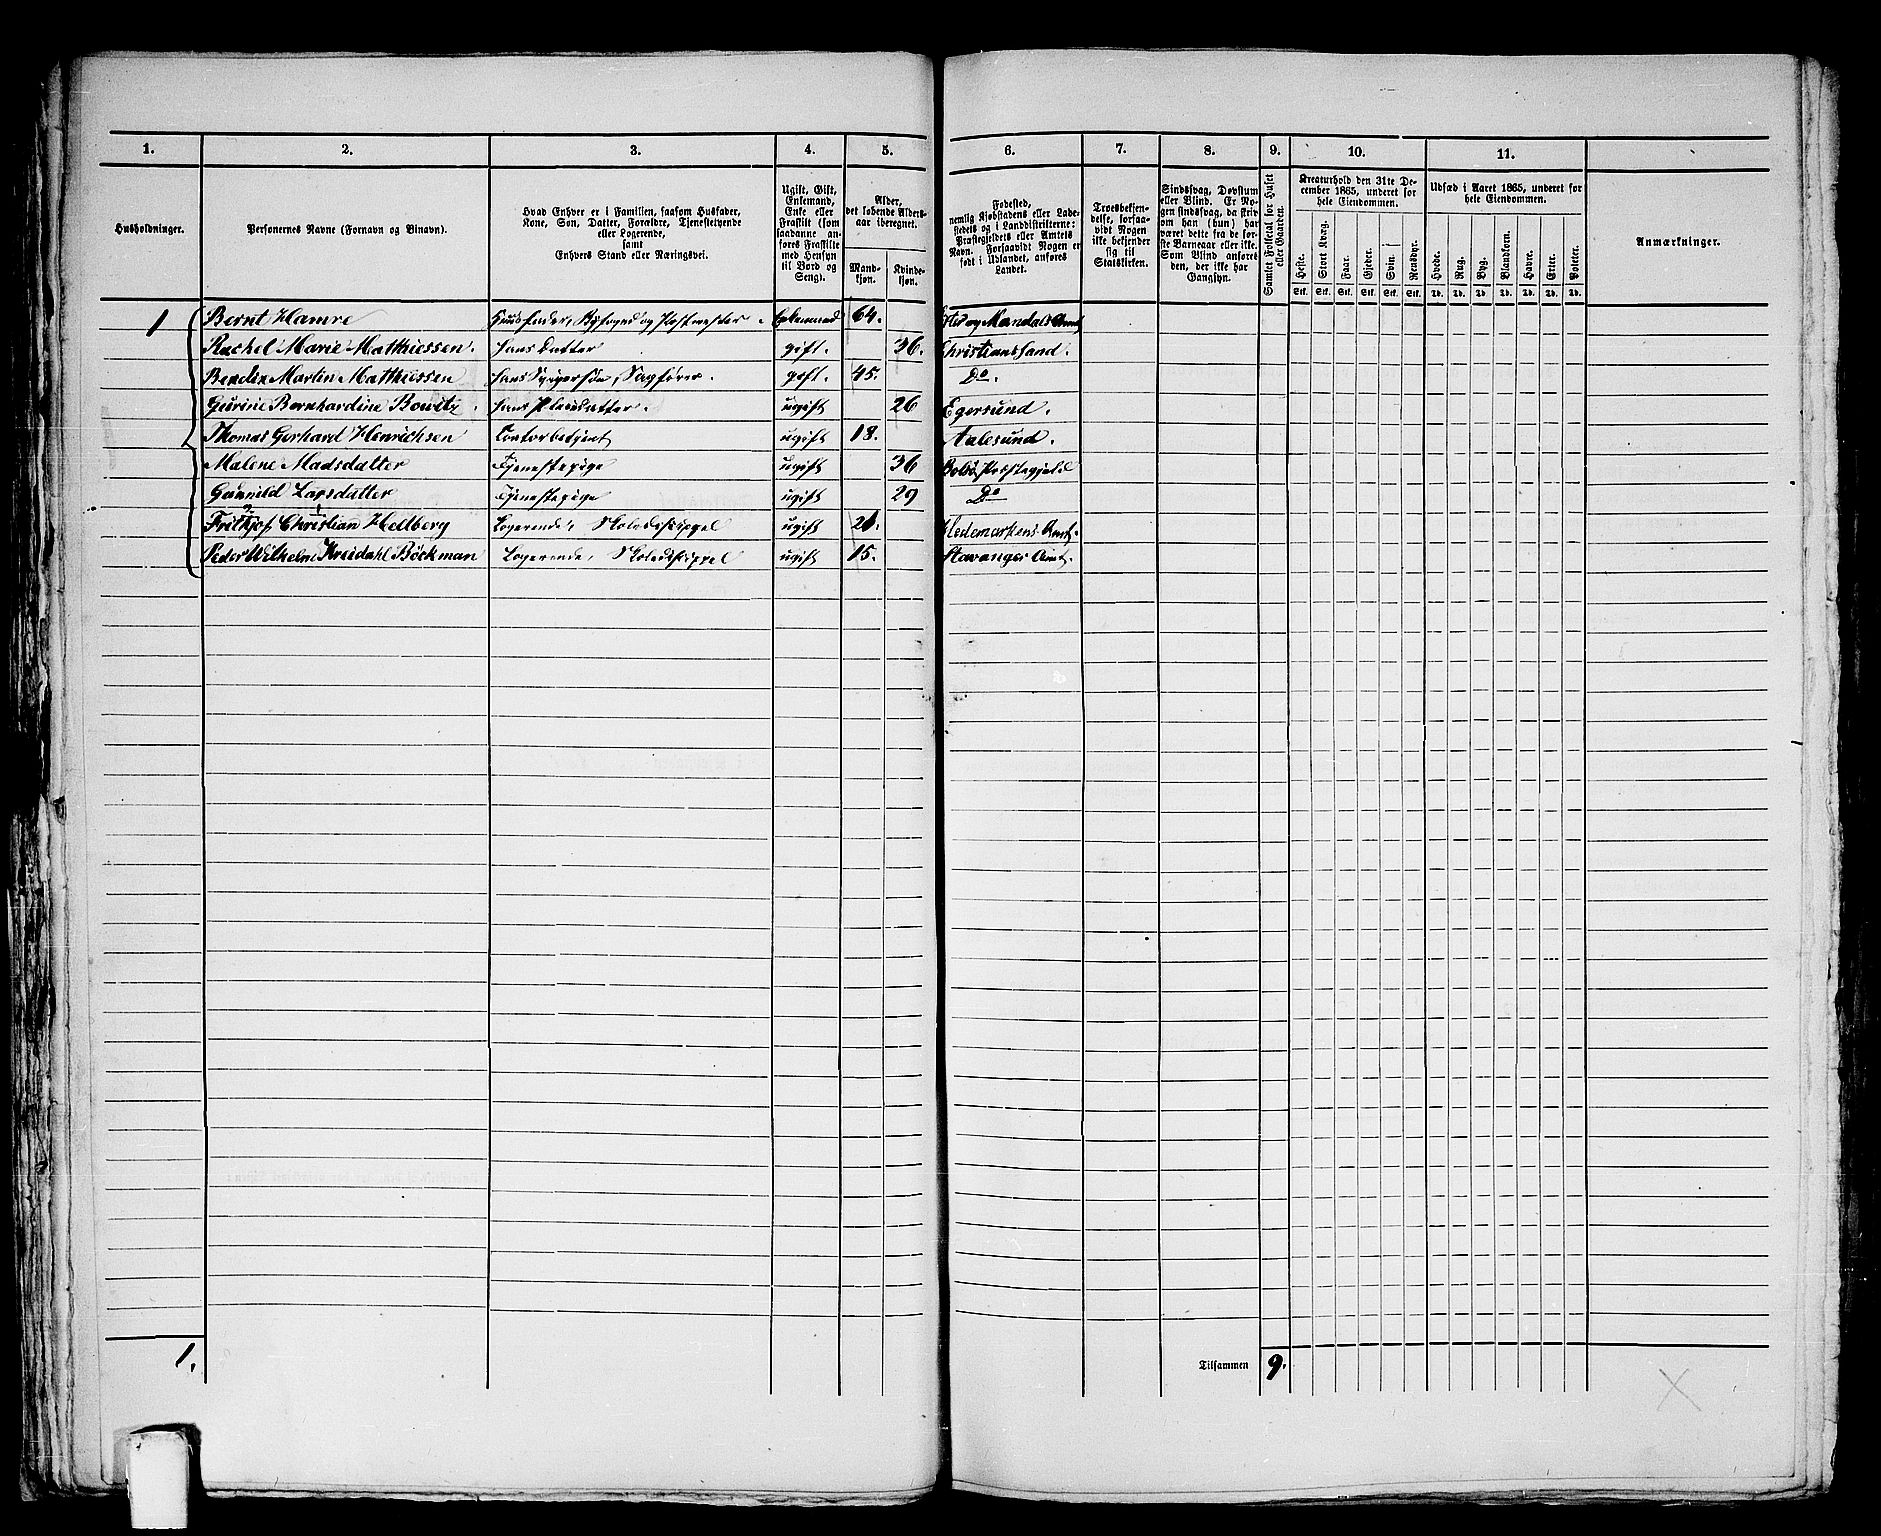 1. 2. 3. 4. 5. 6. 7. 8. 9. 10. 11.
Husholdninger.
Personernes Navne (Fornavn og Tilnavn).
Hvad Enhver er i Familien, saasom Husfader,
Kone, Søn, Datter, Forældre, Tjenestetyende
eller Logerende,
samt
Enhvers Stand eller Næringsvei.
Ugift, Gift,
Enkemand,
Enke eller
Fraskilt (som
saadanne an-
føres Fraskilte
med Hensyn
til Bord og
Seng).
Alder,
det løbende Alders-
aar iberegnet.
Mand-
kjøn.
Kvinde-
kjøn.
Fødested,
nemlig Kjøbstadens eller Lade-
stedets og i Landdistrikterne:
Præstegjeldets eller Amtets
Navn. Forsaavidt Nogen er
født i Udlandet, anføres
Landet.
Troesbekjen-
delse, forsaa-
vidt Nogen
ikke bekjender
sig til
Statskirken.
Sindssvag, Døvstum
eller Blind. Er No-
gen sindssvag, da skriv
om han (hun) har
været dette fra de før-
ste Barneaar eller ikke.
Som Blind anføres
den, der ikke har
Gangsyn.
Samlet Folketal for Huset
eller Gaarden.
Kreaturhold den 31te De-
cember 1865, underet for
hele Eiendommen.
Heste. Stort Kvæg. Faar. Gjeder. Svin. Rensdyr.
Stk. Stk. Stk. Stk. Stk. Stk.
Udsæd i Aaret 1865, underet for
hele Eiendommen.
Hvede. Rug. Byg. Blandkorn. Havre. Erter. Poteter.
Td. Td. Td. Td. Td. Td. Td.
Anmærkninger.
1 Bernt Hamre Huusfader, Byfoged og Postmester. Enkemand 64. Lister og Mandals Amt
Rachel Marie Matthiessen. Hans Datter gift. 36. Christianssand.
Bendix Martin Matthiessen Hans Svigersøn, Sagfører. gift. 45. Do.
Gurine Bernhardine Bowitz. Hans Pleiedatter. ugift 26 Egersund.
Thomas Gerhard Henrichsen Contorbetjent ugift 18. Aalesund.
Malene Madsdatter Tjenestepige ugift 36 Bolsø Præstegjeld
Gunnild Larsdatter Tjenestepige ugift 29 Do
Frithjof Christian Hellberg Logerende, Skolediscippel ugift 21. Hedemarkens Amt.
Peder Wilhelm Kreidahl Bøckman Logerende, Skolediscippel ugift 15. Stavanger Amt.
1.
Tilsammen 9.